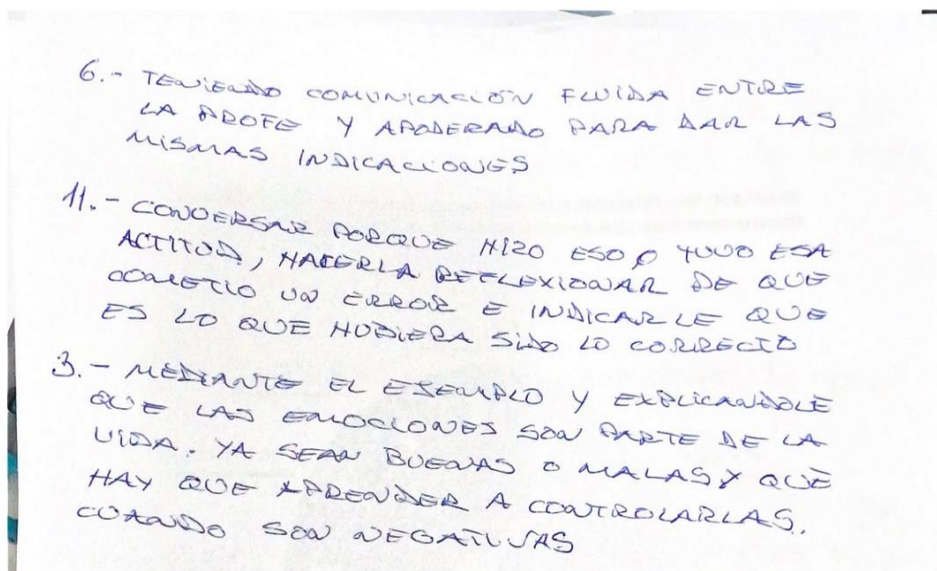 6.- TENIENDO COMUNICACIÓN FLUIDA ENTRE
LA PROFE Y APODERADO PARA DAR LAS
MISMAS INDICACIONES
11.- CONVERSAR PORQUE HIZO ESO O TUVO ESA
ACTITUD, HACERLA REFLEXIONAR DE QUE
COMETIO UN ERROR E INDICARLE QUE
ES LO QUE HUBIERA SIDO LO CORRECTO
3.- MEDIANTE EL EJEMPLO Y EXPLICANDOLE
QUE LAS EMOCIONES SON PARTE DE LA
VIDA. YA SEAN BUENAS O MALAS Y QUE
HAY QUE APRENDER A CONTROLARLAS.
CUANDO SON NEGATIVAS